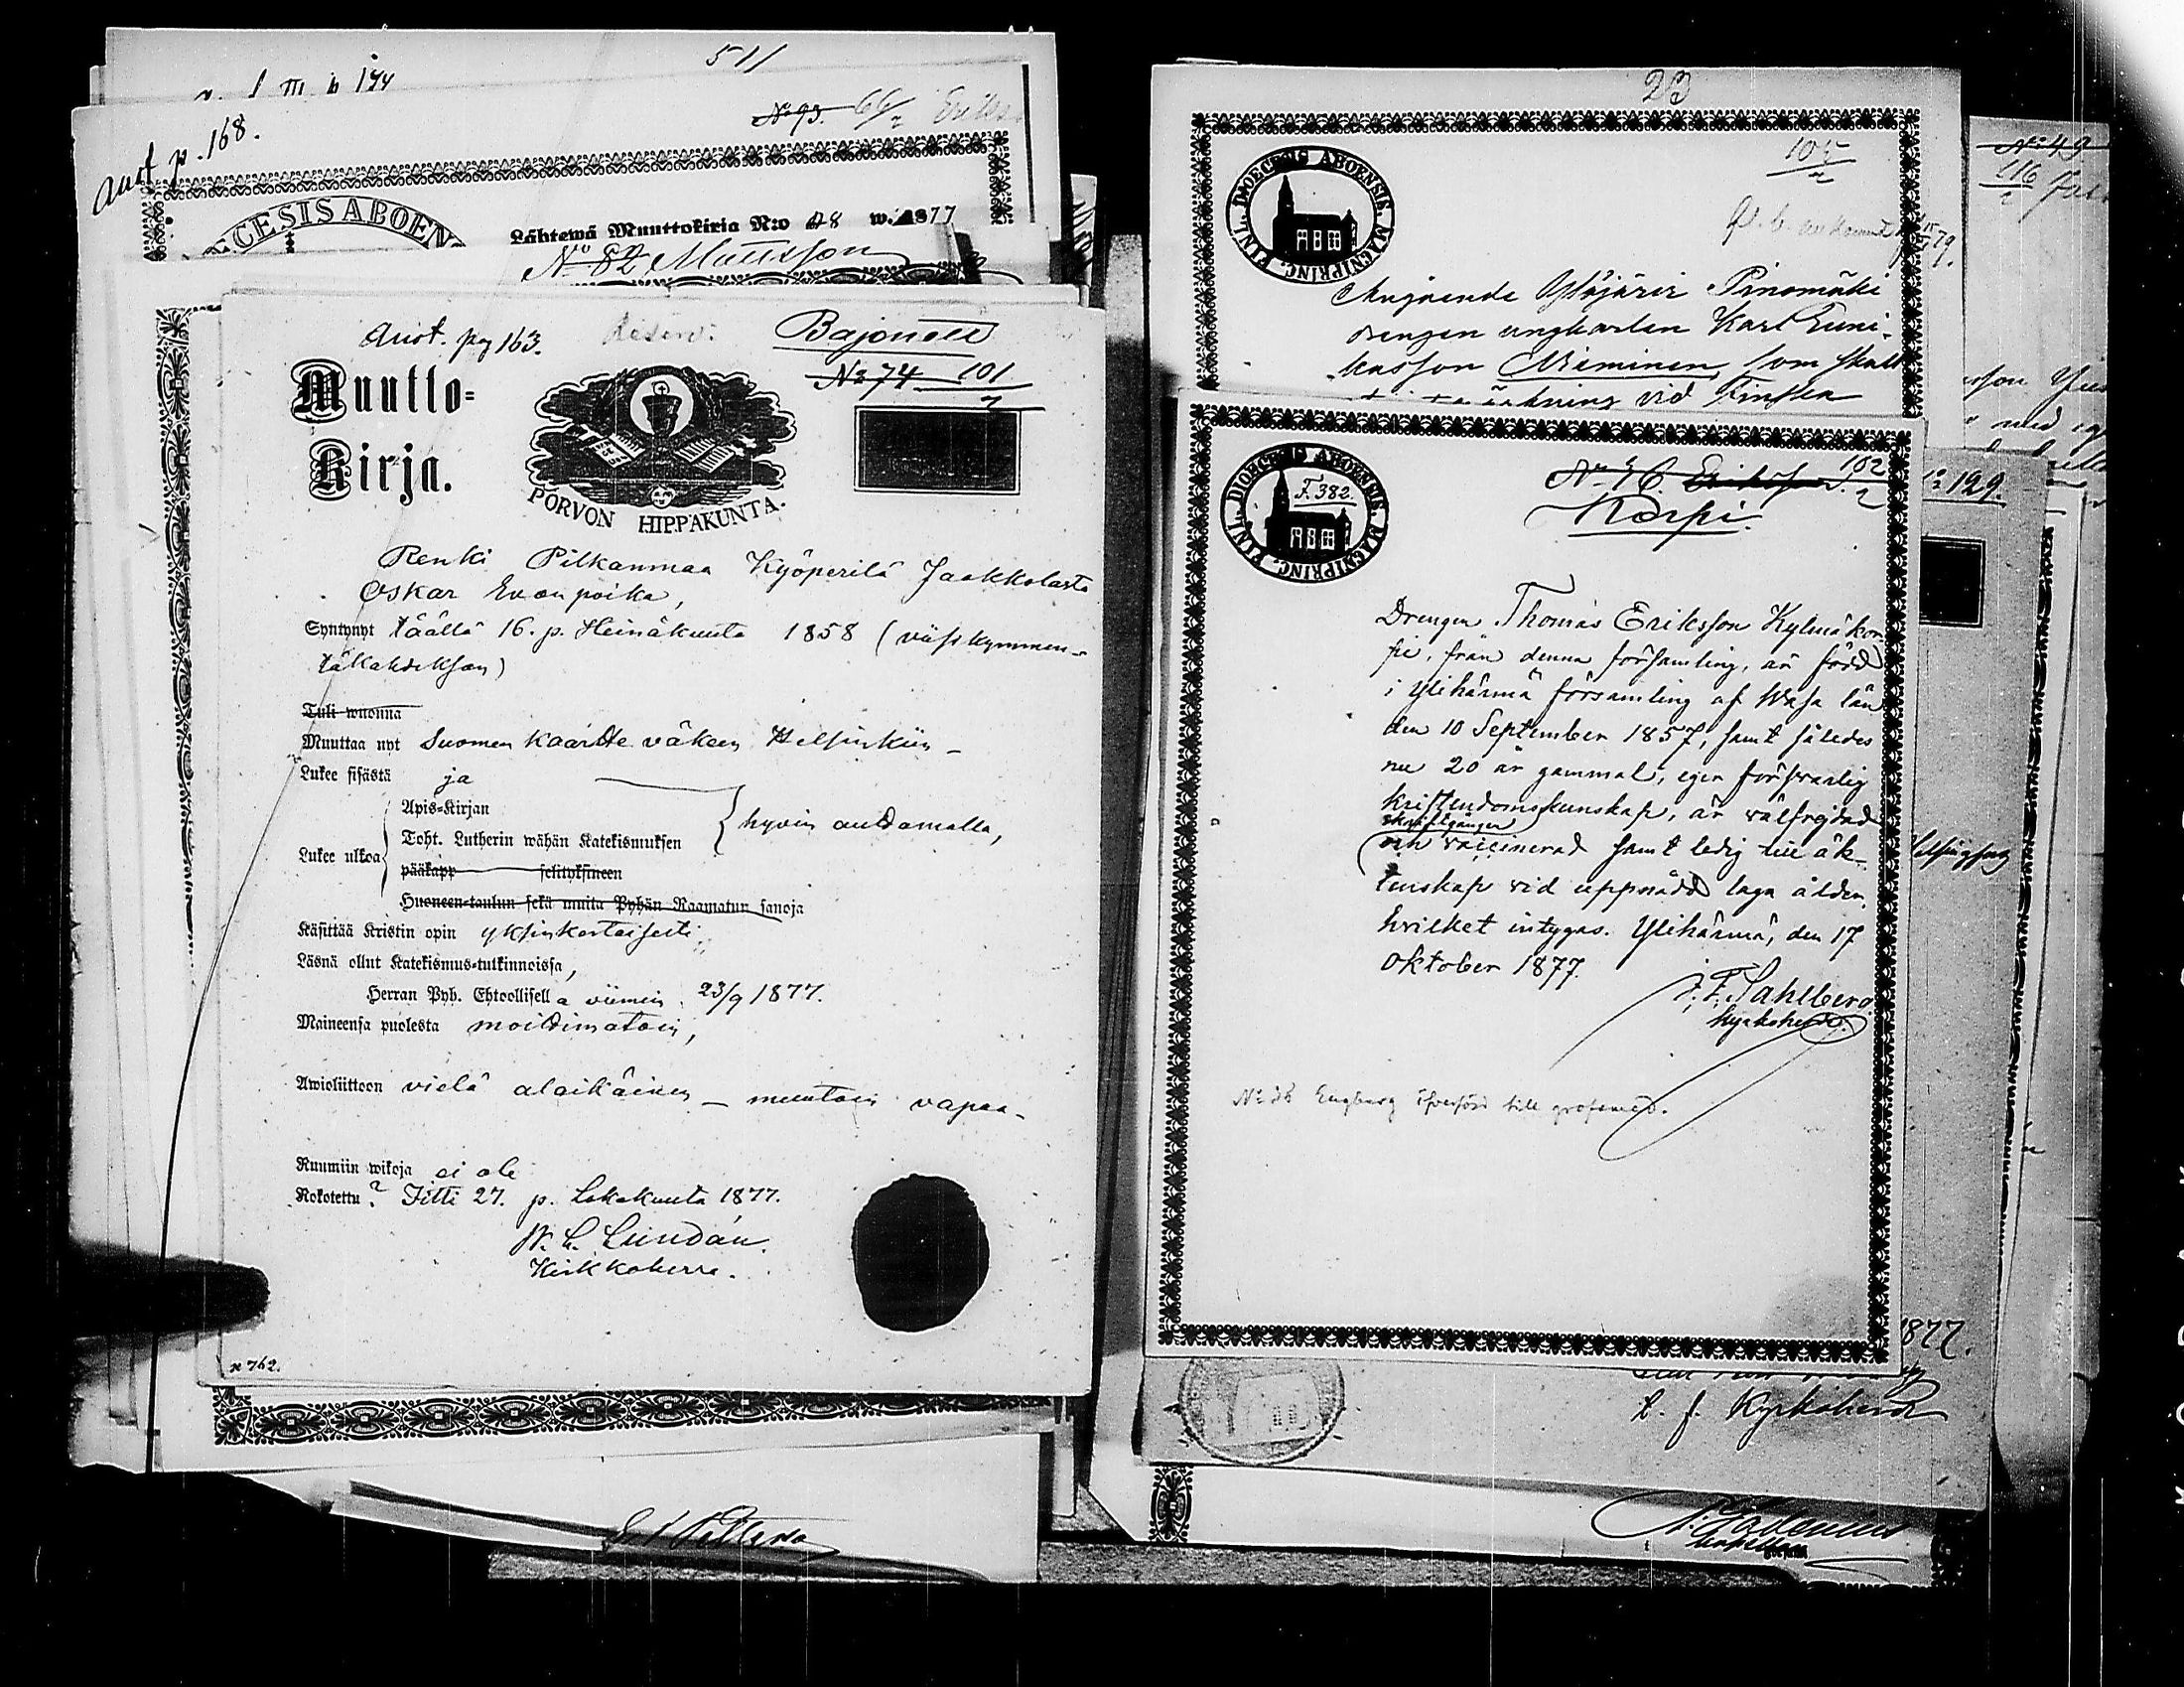 511
III b 144
Anot p. 168.
No 93. 66/2
CESIS ABOEN
Lähtewä Muuttokirja N:o 28 w. 1877
No 82 Mattsson
Anot. pag 163. Reserv. Bajonett
No 74 101/2
Muutto-
Kirja.
PORVON HIPPAKUNTA.
Renki Pilkanmaa Kyöperilä Jaakkolasta
Oskar Evanpoika,
Syntynyt täällä 16. p. Heinäkuuta 1858 (viisikymmen-
täkahdeksan)
Tuli wuonna
Muuttaa nyt Suomen kaartte väkeen Helsinkiin -
Lukee sisästä ja
Apis-Kirjan
Toht. Lutherin wähän Katekismuksen
Lukee ulkoa
hyvin auttamalla,
pääkapp selityksineen
Huoneen-taulun sekä muita Pyhän Raamatun sanoja
Käsittää Kristin opin yksinkertaisesti,
Läsnä ollut Katekismus-tutkinnoissa,
Herran Pyh. Ehtoollisella viimein 23/9 1877.
Maineensa puolesta moittimatoin,
Awioliittoon vielä alaikäinen - muutoin vapaa -
Ruumiin wikoja ei ole
Rokotettu? Iitti 27. p. Lokakuuta 1877.
W. L. Lundán.
Kirkkoherra.
n 762.
23
FINL. DIOECESIS ABOENSIS. MAGNIPRINC.
105/2
Angående Ylöjärvi Pinomäki
drengen ungkarlen Karl Eeni-
kasson Nieminen, som skall
vid Finska
FINL. DIOECESIS ABOENSIS. MAGNIPRINC.
F. 382.
No 46. Eriksson. 102/2
Korpi.
Drengen Thomas Eriksson Kylmäkor
pi, från denna församling, är född
i Ylihärmä församling af Wasa län
den 10 September 1857, samt således
nu 20 år gammal, eger försvarlig
kristendomskunskap, är välfrejdad
skriftgången
och vaccinerad samt ledig till äk-
tenskap vid uppnådd laga ålder,
hvilket intygas. Ylihärmä, den 17
Oktober 1877.
J. F. Sahlberg.
kyrkoherde.
No 36 Engberg till
No 49
116/2
No 129.
Helsingfors
1877.
t. f. Kyrkoherde
kapellan